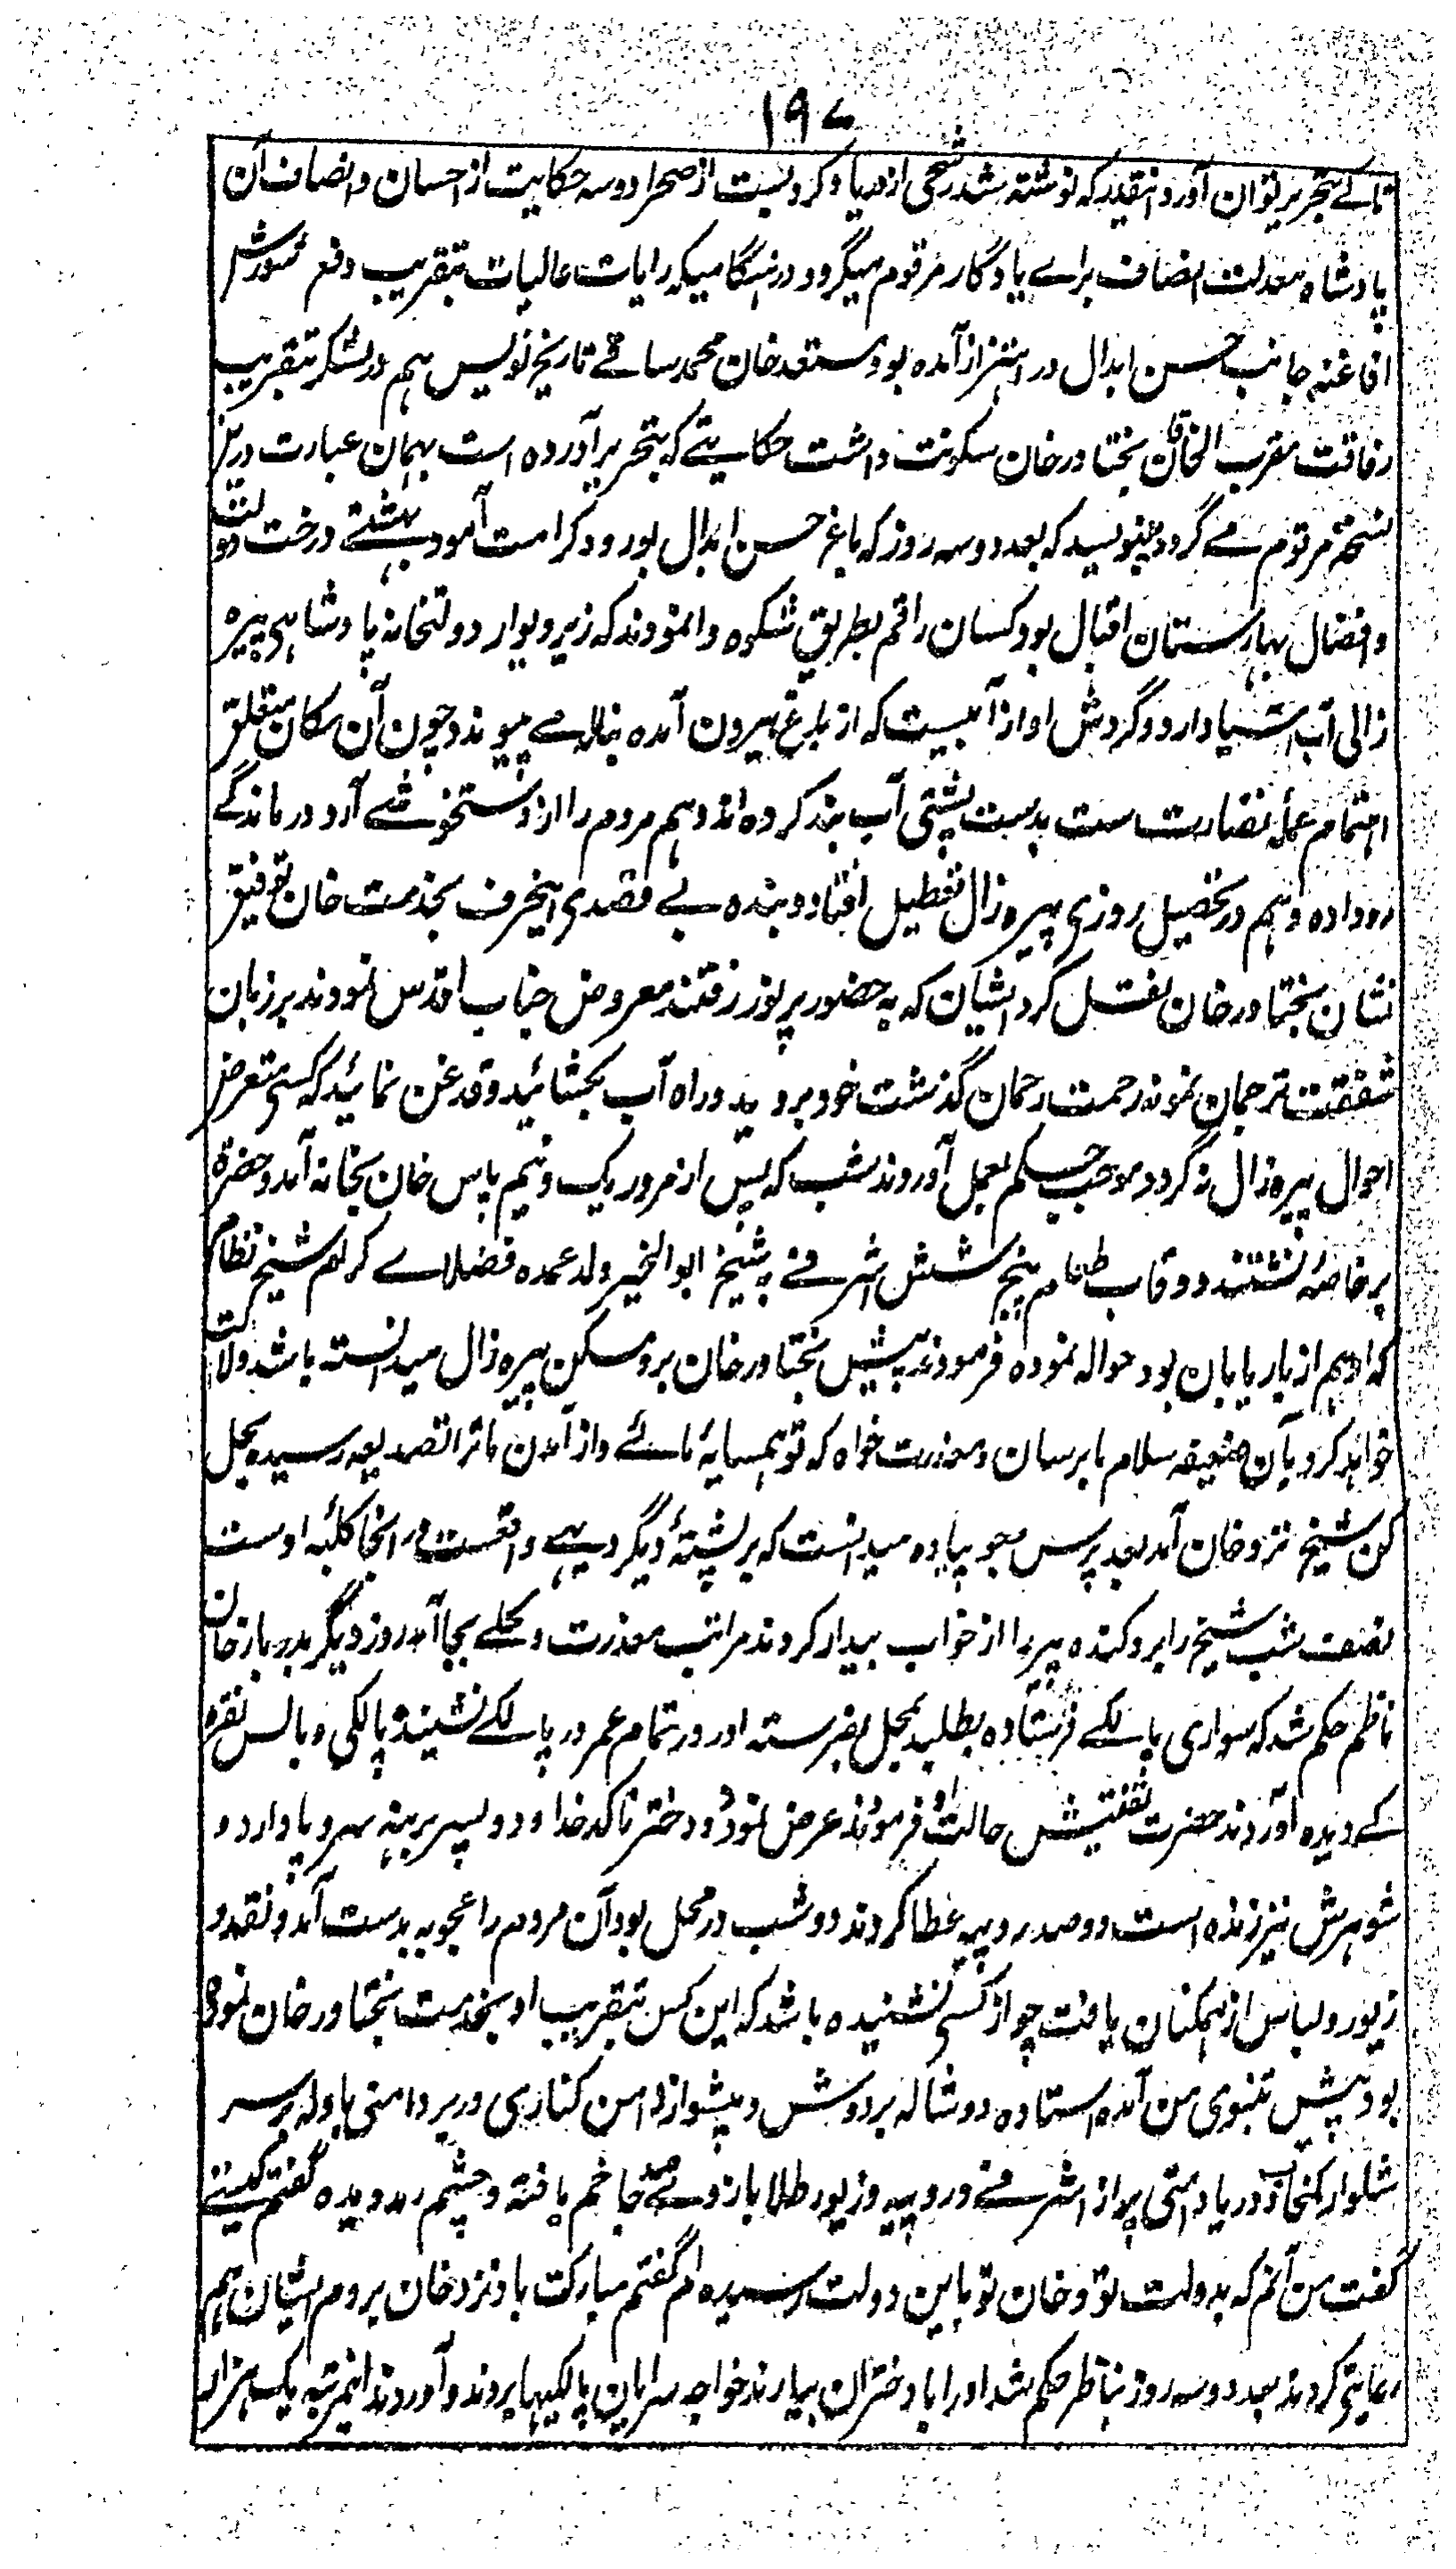 ۱۹۷
تاکے بتحریر توان آورد اینقدر که نوشته شد رشحی از دریا و گرد بست از صحرا دو سه حکایت از احسان و انصاف آن
پادشاه معدلت انصاف براے یادگار مرقوم میگردد در هنگامیکه رایات عالیات بتقریب دفع شورش
افاغنه جانب حسن ابدال در اهتزاز آمده بود مستعد خان محمد ساقے تاریخ نویس هم در لشکر بتقریب
رفاقت مقرب الخاقان بختاور خان سکونت داشت حکایتے که بتحریر آورده است بهمان عبارت درین
نسخه مرقوم مے گردد مینویسد که بعد دو سه روز که باغ حسن ابدال بورود کرامت آمود بهشتے درخت دولت
و افضال بهارستان اقبال بود کسان راقم بطریق شکوه وانمودند که زیر دیوار دولتخانه پادشاهی پیره
زالی آب آسیا دارد و گردش او از آبیست که از باغ بیرون آمده بناله مے پیوندد چون آن مکان متعلق
اهتمام عمله نظارت ست بدست پشتی آب بند کرده اند و هم مردم را از دستخوشے آرد درماندگے
رو داده و هم در تحصیل روزی پیره زال تعطیل افتاد و بنده بے قصدی اینحرف بخدمت خان توفیق
نشان بختاور خان نقل کرد ایشان که به حضور پر نور رفتند معروض جناب اقدس نمودند بر زبان
شفقت ترجمان نمونه رحمت رحمان گذشت خود بروید و راه آب بگشائید و قدغن نمائید که کسی متعرض
احوال پیره زال نگردد موجب حکم بعمل آوردند شب که پس از مرور یک و نیم پاس خان بخانه آمد و حضرة
بر خاصه نشستند دو قاب طعام پنج شش اشرفے به شیخ ابو الخیر ولد عمده فضلاے کرام شیخ نظام
که او هم از باریابان بود حواله نموده فرمودند پیش بختاور خان برو مسکن پیره زال میدانسته باشد دلالت
خواهد کرد بآن ضعیفه سلام ما برسان و معذرت خواه که تو همسایهٔ مائے و از آمدن ما ترا تصدیعه رسیده بحل
کن شیخ نزد خان آمد بعد پرس و جو پیاده میدانست که بر پشتهٔ دیگر دیهے واقعست در انجا کلبهٔ اوست
نصف شب شیخ را برد کنده پیر را از خواب بیدار کردند مراتب معذرت و بحلے بجا آمد روز دیگر بدربار خان
ناظر حکم شد که سواری پالکے فرستاده بطلبد بمحل بفرستد او در تمام عمر در پالکے نشینند پالکی و بالس نقره
کے دیده آوردند حضرت تفتیش حالت او فرمودند عرض نمود دو دختر ناکدخدا و دو پسر برهنه سر و پا دارد و
شوهرش نیز زنده است دو صد روپیه عطا کردند دو شب در محل بود آن مردم را عجوبه بدست آمد و نقد و
زیور و لباس از همگنان یافت چو از کسی نشنیده باشد که این کس بتقریب او بخدمت بختاور خان نموده
بود پیش تنبوی من آمده استاده دوشاله بر دوش و پیشواز دامن کناری در بر دامنی باوله بر سر
شلوار کمخاب در پا دامنی پر از اشرفے و روپیه و زیور طلا بازوے خم یافته و چشم رمد دیده گفتم کیستے
گفت من آنم که بدولت تو و خان تو باین دولت رسیده ام گفتم مبارکت باد نزد خان بروم ایشان هم
رعایتی کردند بعد دو سه روز بناظر حکم شد او را با دختران بیارند خواجه سرایان پالکیها بردند و آوردند اینمرتبه یک هزار